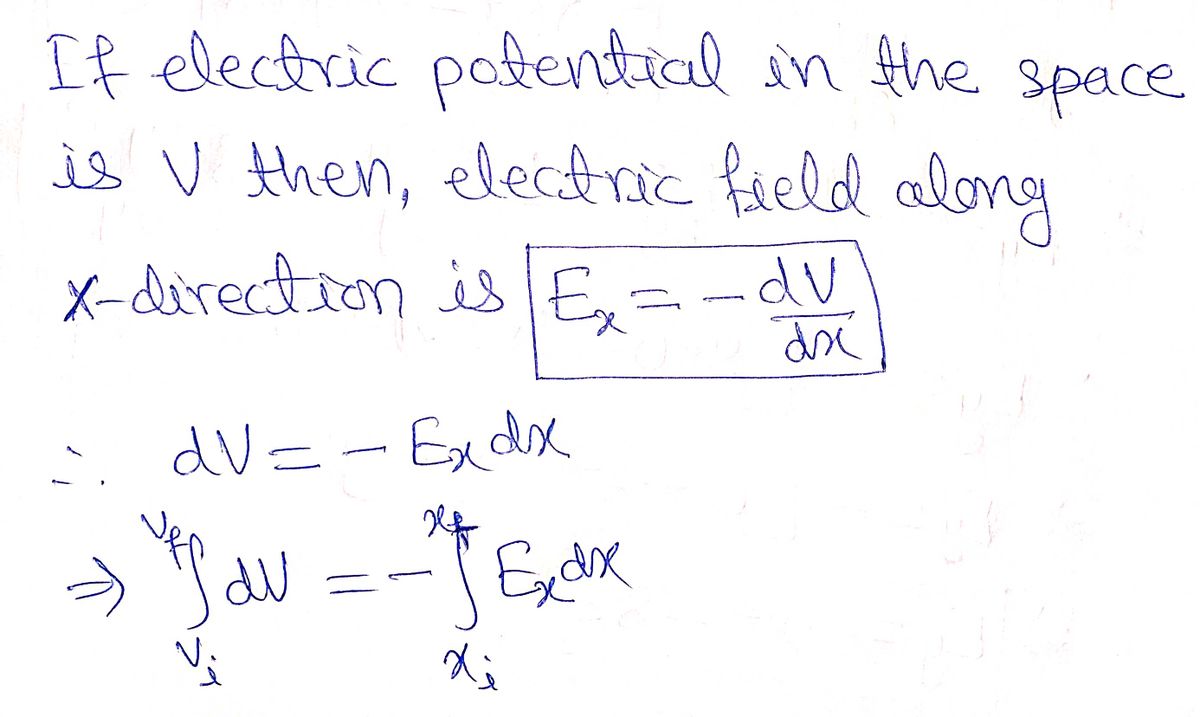 If electric potential in the space
is V then, electric field along
x-direction is E_x = - dV/dx
∴ dV = - E_x dx
⇒ ∫_{V_i}^{V_f} dV = - ∫_{x_i}^{x_f} E_x dx